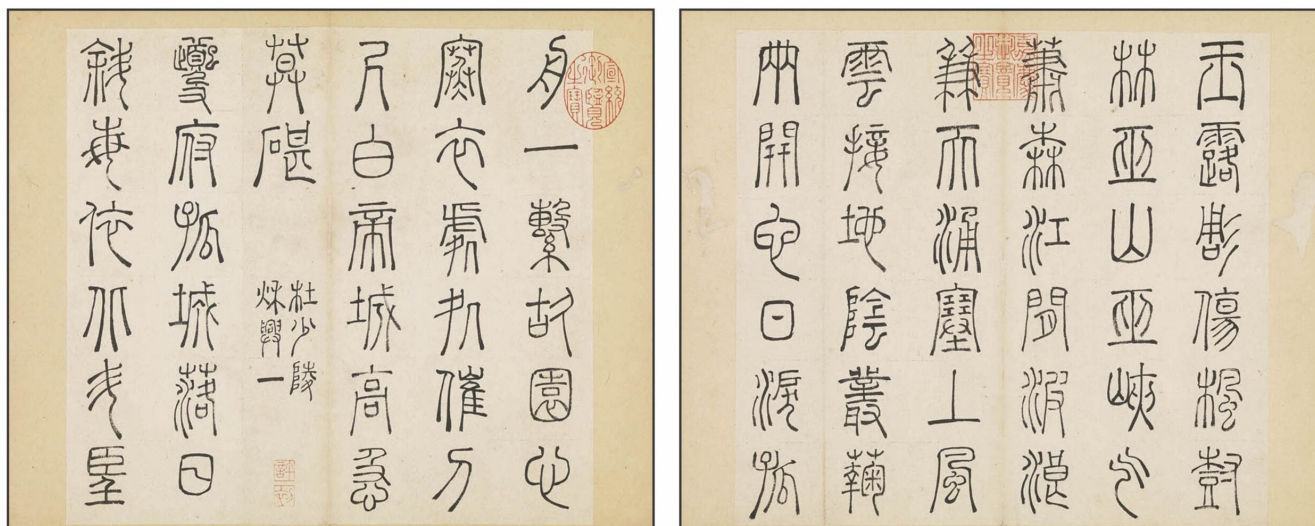 玉露彫傷楓樹
林巫山巫峽气
蕭森江間波浪
兼天涌塞上風
雲接地陰叢蘜
兩開它日淚孤
舟一繫故園心
寒衣處処催刀
尺白帝城高急
莫碪
杜少陵
秌興一
夔府孤城落日
斜每依北斗望
宣統御覽之寶